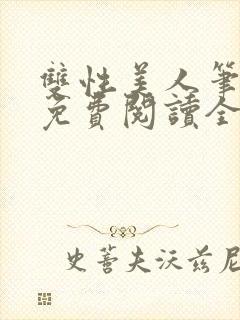 雙性美人筆
免費閱讀全
史蒂夫沃茲尼